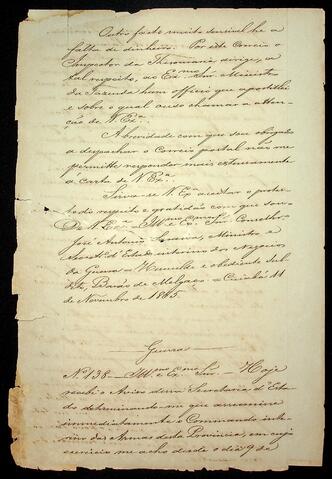 Outro facto muito sensivel he a
falta de dinheiro. Por este Correio o
Inspector da Thesouraria dirige, a
tal respeito, ao Ex.mo Snr. Ministro
da Fazenda hum officio que apostilei
e sobre o qual ouso chamar a atten-
ção de V. Ex.a
A brevidade com que sou obrigado
a despachar o Correio postal não me
permitte responder mais extensamente
á carta de V. Ex.a
Serva-se V. Ex.a aceitar o protes-
to do respeito e gratidão com que sou
De V. Ex.a Ill.mo e Ex.mo Snr. Conselhr.o
José Antonio Saraiva, Ministro e
Secret.o d'Estado interino dos Negocios
da Guerra = Humilde e obediente sub-
dito, Barão de Melgaço = Cuiabá 11
de Novembro de 1865.
Guerra
N.o 138 = Ill.mo e Ex.mo Snr. = Hoje
recebi o Aviso dessa Secretaria d'Esta-
do determinando-me que assumisse
immediatamente o Commando inte-
rino das Armas desta Provincia, em cujo
exercicio me acho desde o dia 9 de